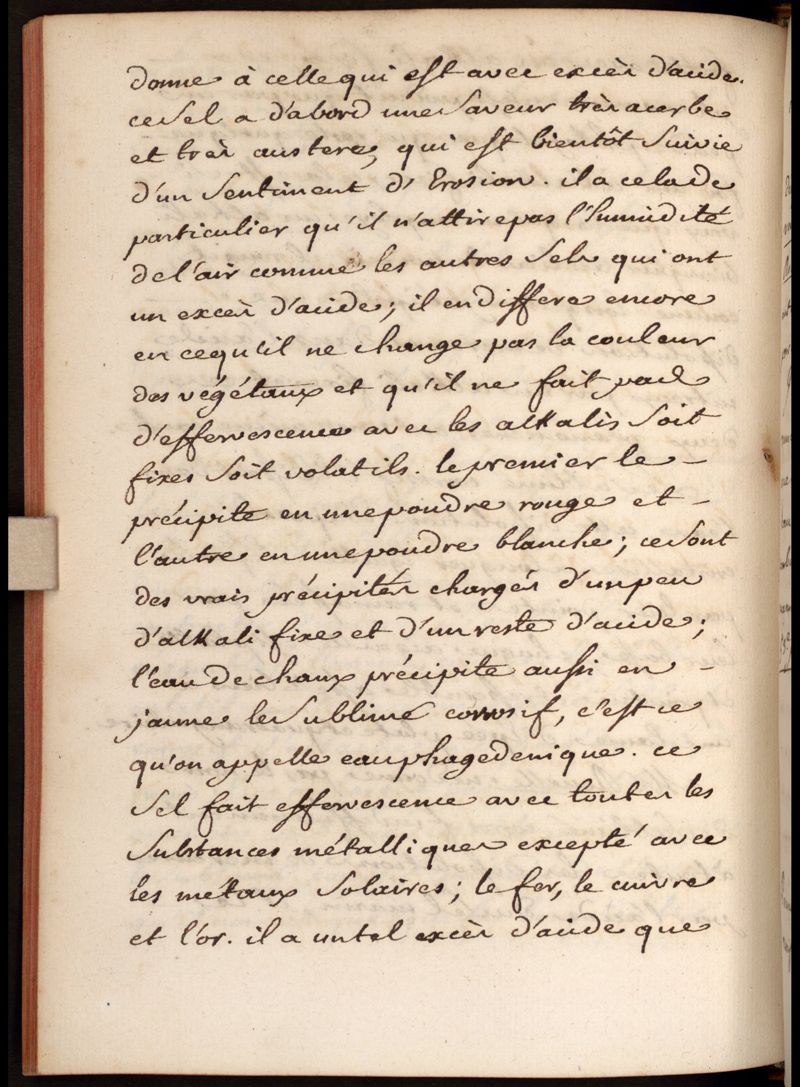 donne à celle qui est avec excès d'acide.
ce Sel a d'abord une Saveur très acerbe
et très austere, qui est bientôt Suivie
d'un Sentiment d'Erosion. il a cela de
particulier qu'il n'attire pas l'humidité
de l'air comme les autres Sels qui ont
un excès d'acide; il en differe encore
en ce qu'il ne change pas la couleur
des végétaux et qu'il ne fait pas
d'effervescence avec les alkalis Soit
fixes Soit volatils. le premier le –
précipite en une poudre rouge et –
l'autre en une poudre blanche; ce Sont
des vrais précipités chargés d'un peu
d'alkali fixe et d'un reste d'acide;
l'eau de chaux précipite aussi en –
jaune le Sublimé corrosif, c'est ce
qu'on appelle eau phagedenique. ce
Sel fait effervescence avec toutes les
Substances métalliques excepté avec
les métaux Solaires; le fer, le cuivre
et l'or. il a un tel excès d'acide que